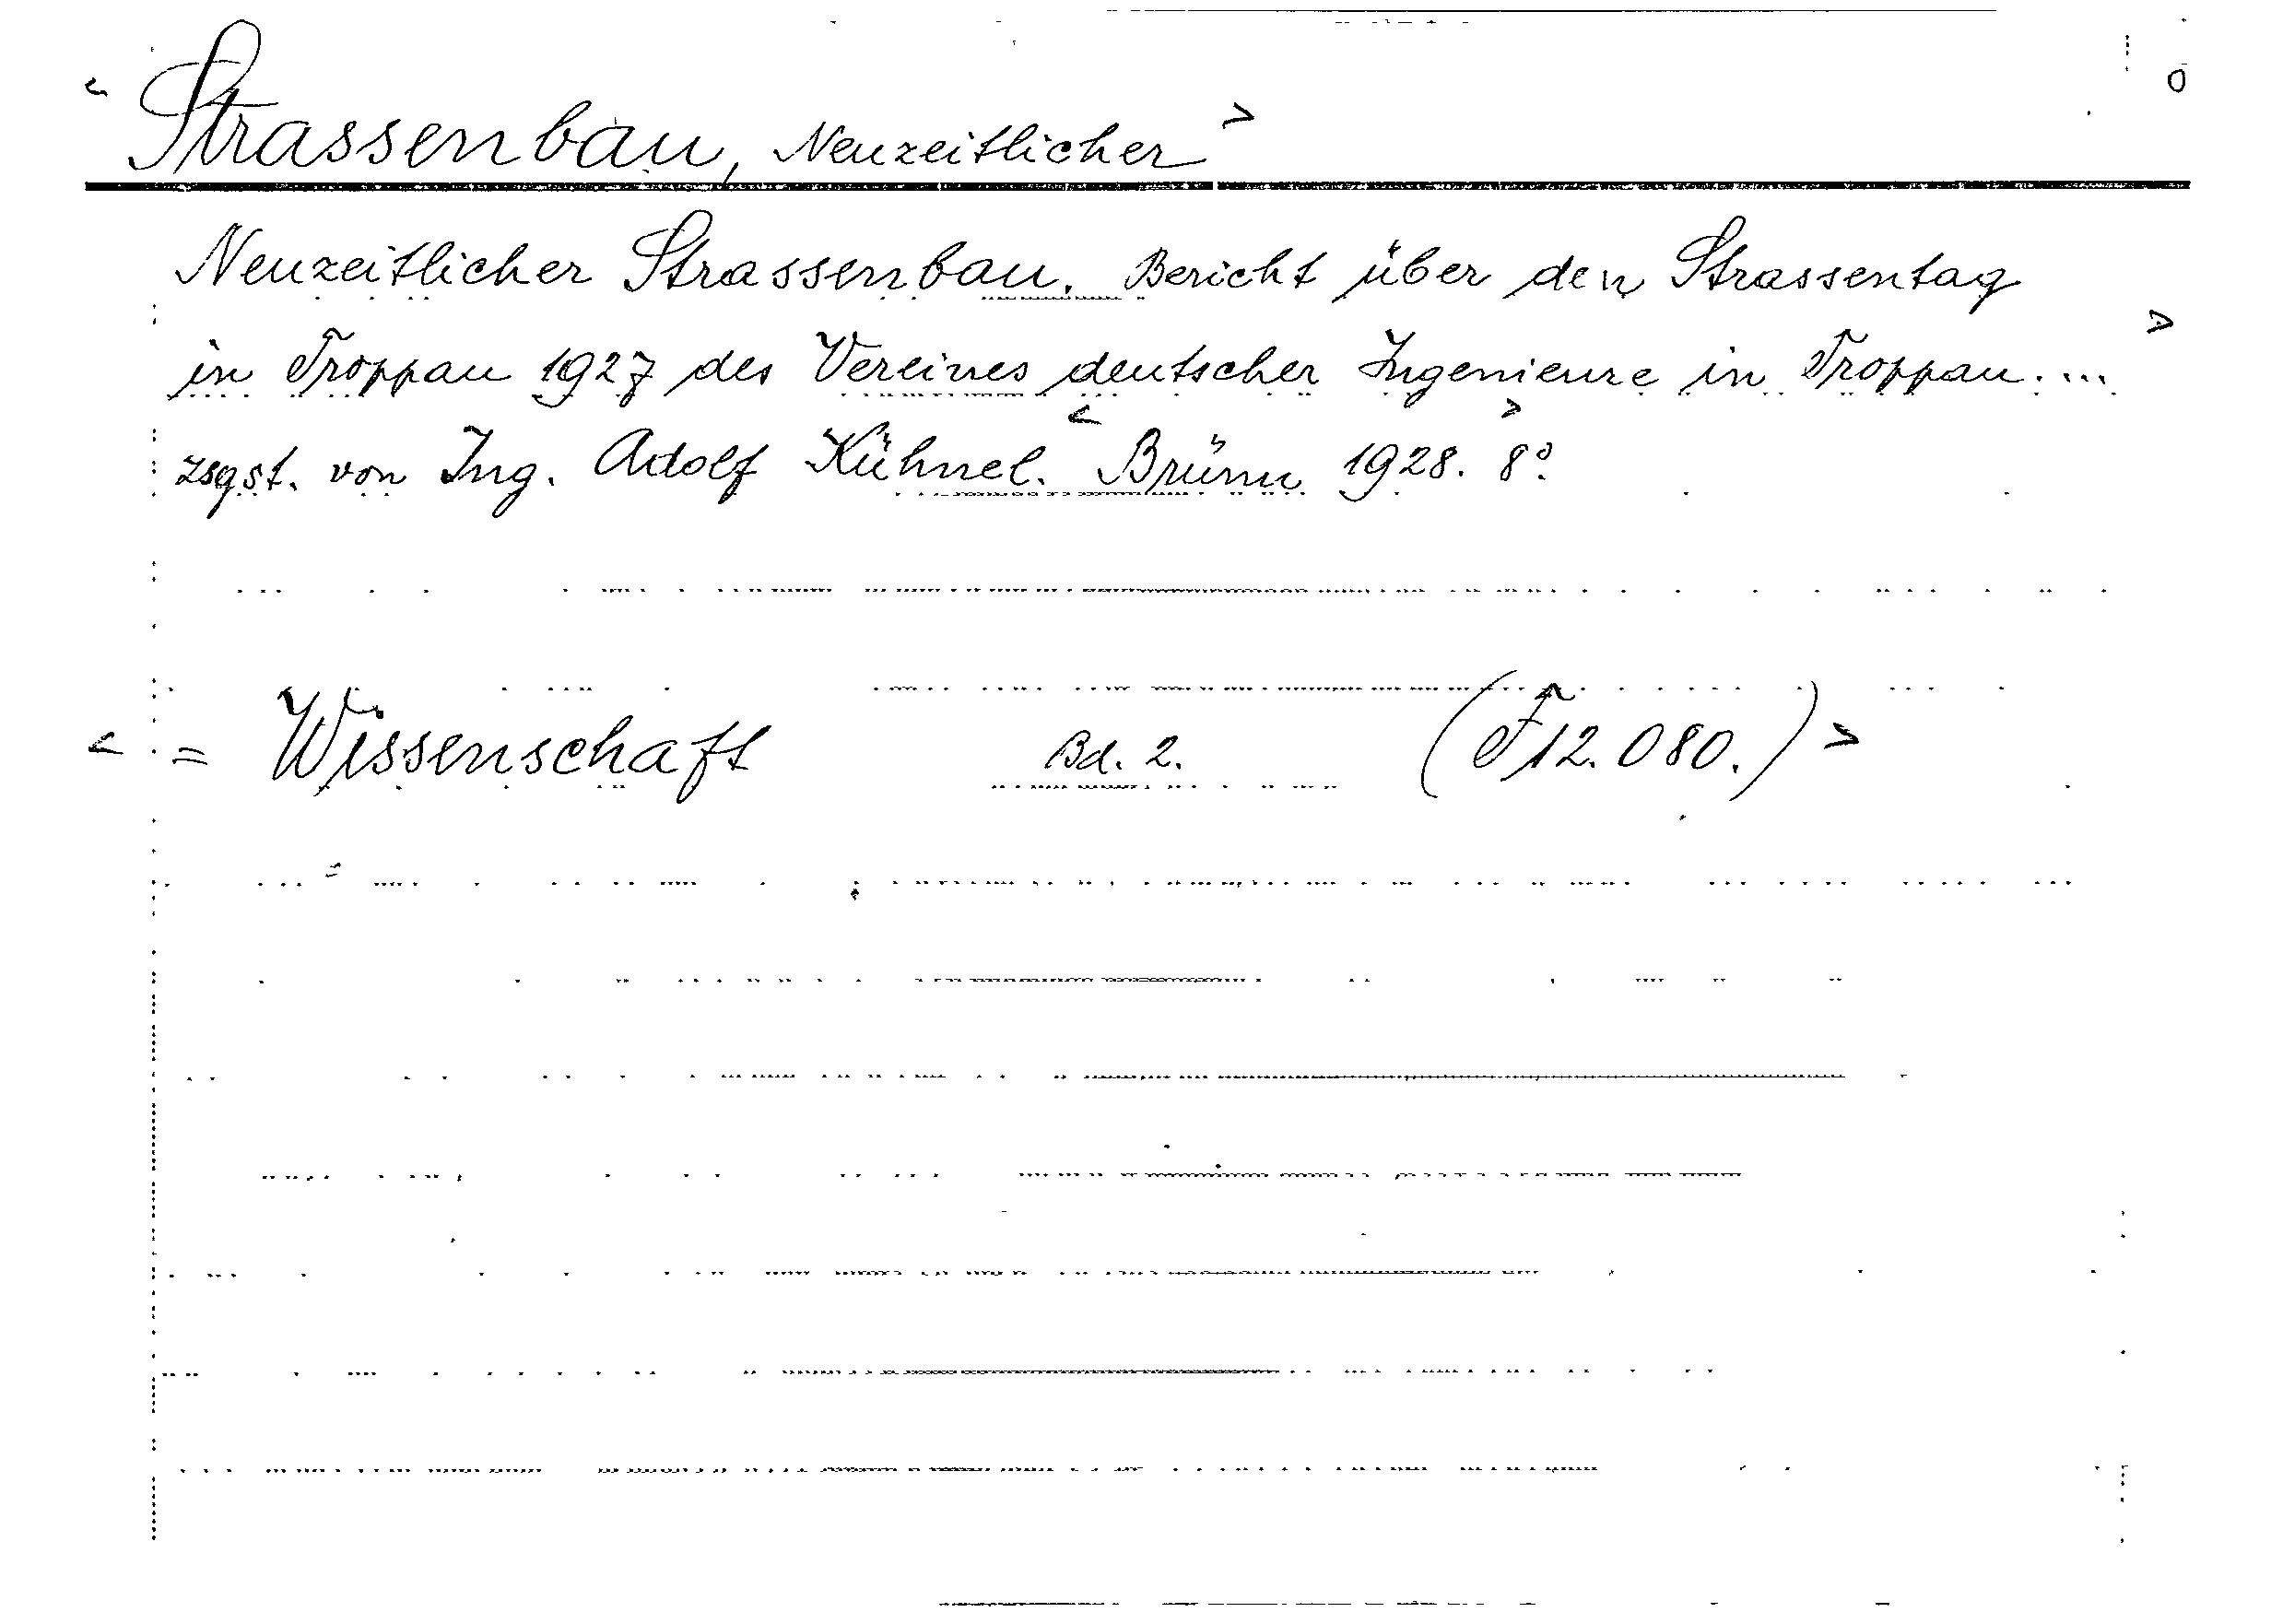 < Strassenbau, Neuzeitlicher > 0
Neuzeitlicher Strassenbau. Bericht über den Strassentag
in Troppau 1927 des Vereines deutscher Ingenieure in Troppau.... >
zsgst. von Ing. Adolf Kühnel. < Brünn 1928. > 8°.
< = Wissenschaft Bd. 2. (T 12.080.) >